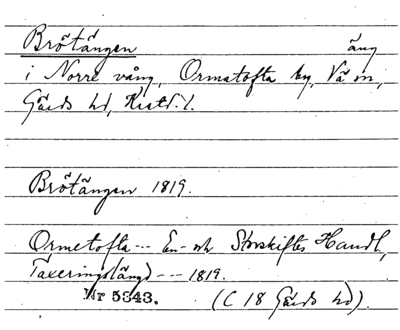 Brötängen äng
i Norre vång, Ormatofta by, Vä sn,
Gärds hd, Kristi. l.
Brötängen 1819.
Ormetofta --- En- och Storskiftes Handl,
Taxeringslängd --- 1819.
Nr 5343. (C 18 Gärds hd).